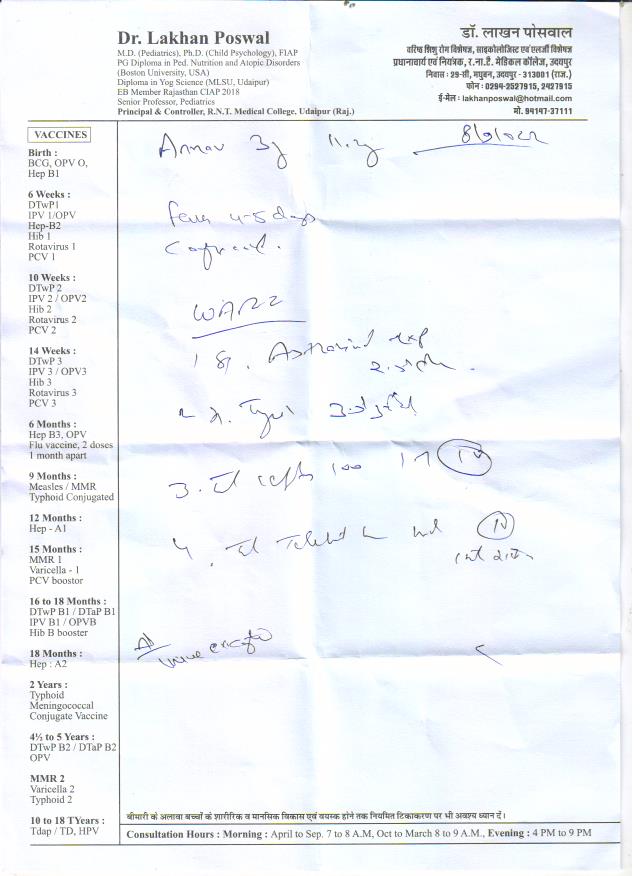 Dr. Lakhan Poswal
M.D. (Pediatrics), Ph.D. (Child Psychology), FIAP
PG Diploma in Ped. Nutrition and Atopic Disorders
(Boston University, USA)
Diploma in Yog Science (MLSU, Udaipur)
EB Member Rajasthan CIAP 2018
Senior Professor, Pediatrics
Principal & Controller, R.N.T. Medical College, Udaipur (Raj.)
डॉ. लाखन पोसवाल
वरिष्ठ शिशु रोग विशेषज्ञ, साइकोलोजिस्ट एवं एलर्जी विशेषज्ञ
प्रधानाचार्य एवं नियंत्रक, र.ना.टै. मेडिकल कॉलेज, उदयपुर
निवास : 29-सी, मधुबन, उदयपुर - 313001 (राज.)
फोन : 0294-2527915, 2427915
ई-मेल : lakhanposwal@hotmail.com
मो. 94147-37111
VACCINES
Birth :
BCG, OPV O,
Hep B1
6 Weeks :
DTwP1
IPV 1/OPV
Hep-B2
Hib 1
Rotavirus 1
PCV 1
10 Weeks :
DTwP 2
IPV 2 / OPV2
Hib 2
Rotavirus 2
PCV 2
14 Weeks :
DTwP 3
IPV 3 / OPV3
Hib 3
Rotavirus 3
PCV 3
6 Months :
Hep B3, OPV
Flu vaccine, 2 doses
1 month apart
9 Months :
Measles / MMR
Typhoid Conjugated
12 Months :
Hep - A1
15 Months :
MMR 1
Varicella - 1
PCV boostor
16 to 18 Months :
DTwP B1 / DTaP B1
IPV B1 / OPVB
Hib B booster
18 Months :
Hep : A2
2 Years :
Typhoid
Meningococcal
Conjugate Vaccine
4½ to 5 Years :
DTwP B2 / DTaP B2
OPV
MMR 2
Varicella 2
Typhoid 2
10 to 18 TYears :
Tdap / TD, HPV
4-5 days
1
2
3. 100
4.
बीमारी के अलावा बच्चों के शारीरिक व मानसिक विकास एवं वयस्क होने तक नियमित टिकाकरण पर भी अवश्य ध्यान दें।
Consultation Hours : Morning : April to Sep. 7 to 8 A.M, Oct to March 8 to 9 A.M., Evening : 4 PM to 9 PM